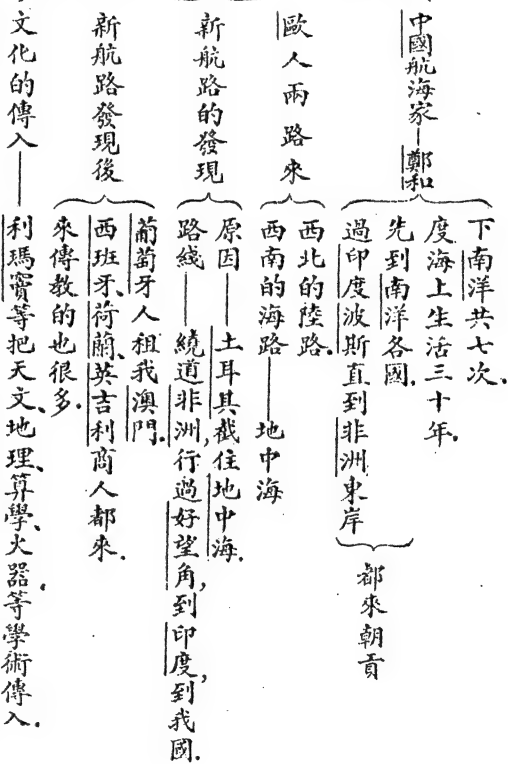 中國航海家—鄭和
下南洋共七次.
度海上生活三十年.
先到南洋各國.
過印度波斯直到非洲東岸
都來朝貢
歐人兩路來
西北的陸路.
西南的海路——地中海
新航路的發現
原因——土耳其截住地中海.
路綫——繞道非洲,行過好望角,到印度,到我國.
新航路發現後
葡萄牙人租我澳門.
西班牙、荷蘭、英吉利商人都來.
來傳教的也很多.
文化的傳入——利瑪竇等把天文、地理、算學、火器等學術傳入.